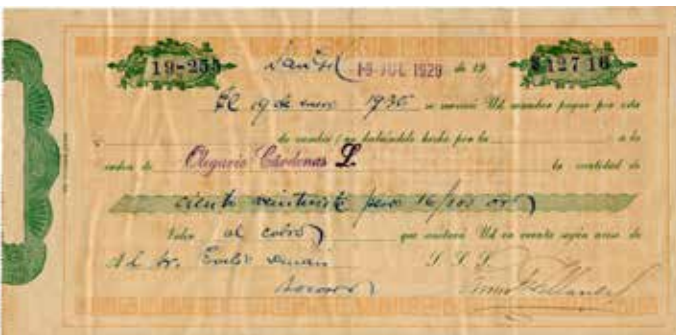 19-255 San Gil 19 JUL 1929 de 19 $127 16
El 19 de enero 1930 se servirá Ud. mandar pagar por esta
de cambio (no habiéndolo hecho por la a la
orden de Olegario Cárdenas L. la cantidad de
ciento veintisiete pesos 16/100 oro
Valor al cobro que sentará Ud en cuenta según aviso de
Al Sr. S. S. S.